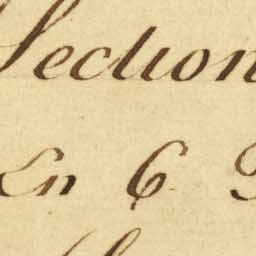 Section
En 6